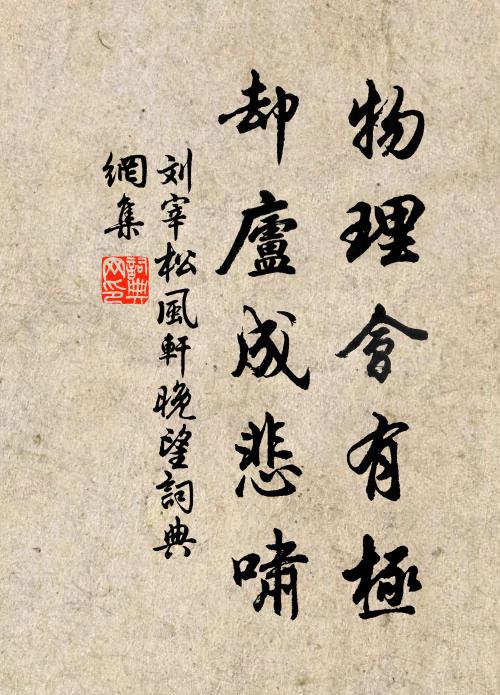 物理會有極
却廬成悲嘯
刘宰松風軒晚望詞典
網集
詞典
网印